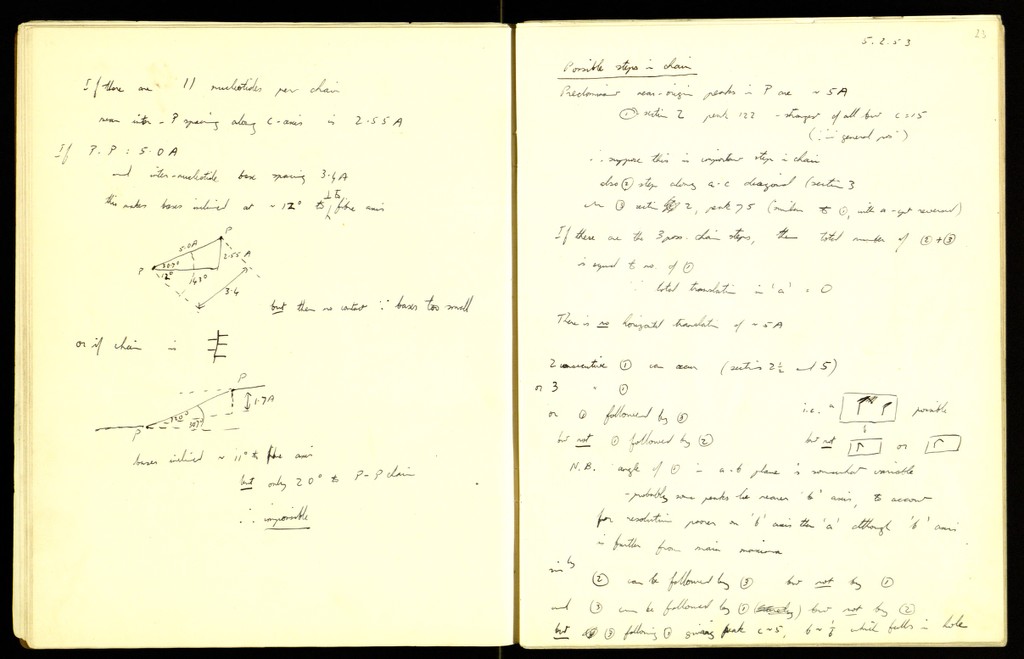 If there are 11 nucleotides per chain
mean inter-P spacing along c-axis is 2.55 A
If P.P : 5.0 A
and inter-nucleotide base spacing 3.4 A
this makes bases inclined at ~ 12° to ⊥ to fibre axis
P
5.0A
2.55 A
P
12°
3.4
but then no contact ∵ bases too small
or if chain is
P
1.7A
P
20°
bases inclined ~ 11° to fibre axis
but only 20° to P-P chain
∴ impossible
23
5.2.53
Possible steps in chain
Predominant near-origin peaks in P are ~ 5A
① section 2 peak 122 - strongest of all but c > 15
(∵ in general pos')
∴ suppose this is important step in chain
also ② step along a-c diagonal (section 3
or ③ section 2, peak 75 (similar to ①, with a-cpt reversed)
If these are the 3 poss. chain steps, then total number of ② + ③
is equal to no. of ①
∵ total translation in 'a' = 0
There is no horizontal translation of ~ 5A
2 consecutive ① can occur (sections 2½ and 5)
or 3 " ①
or ① followed by ③
but not ① followed by ②
i.e. possible
but not or
N.B. angle of ① in a-b plane is somewhat variable
- probably some peaks lie nearer 'b' axis, to account
for resolution poorer on 'b' axis than 'a' although 'b' axis
is further from main maxima
② can be followed by ③ but not by ①
and ③ can be followed by ① but not by ②
but ③ following ① giving peak c~5, which falls in hole